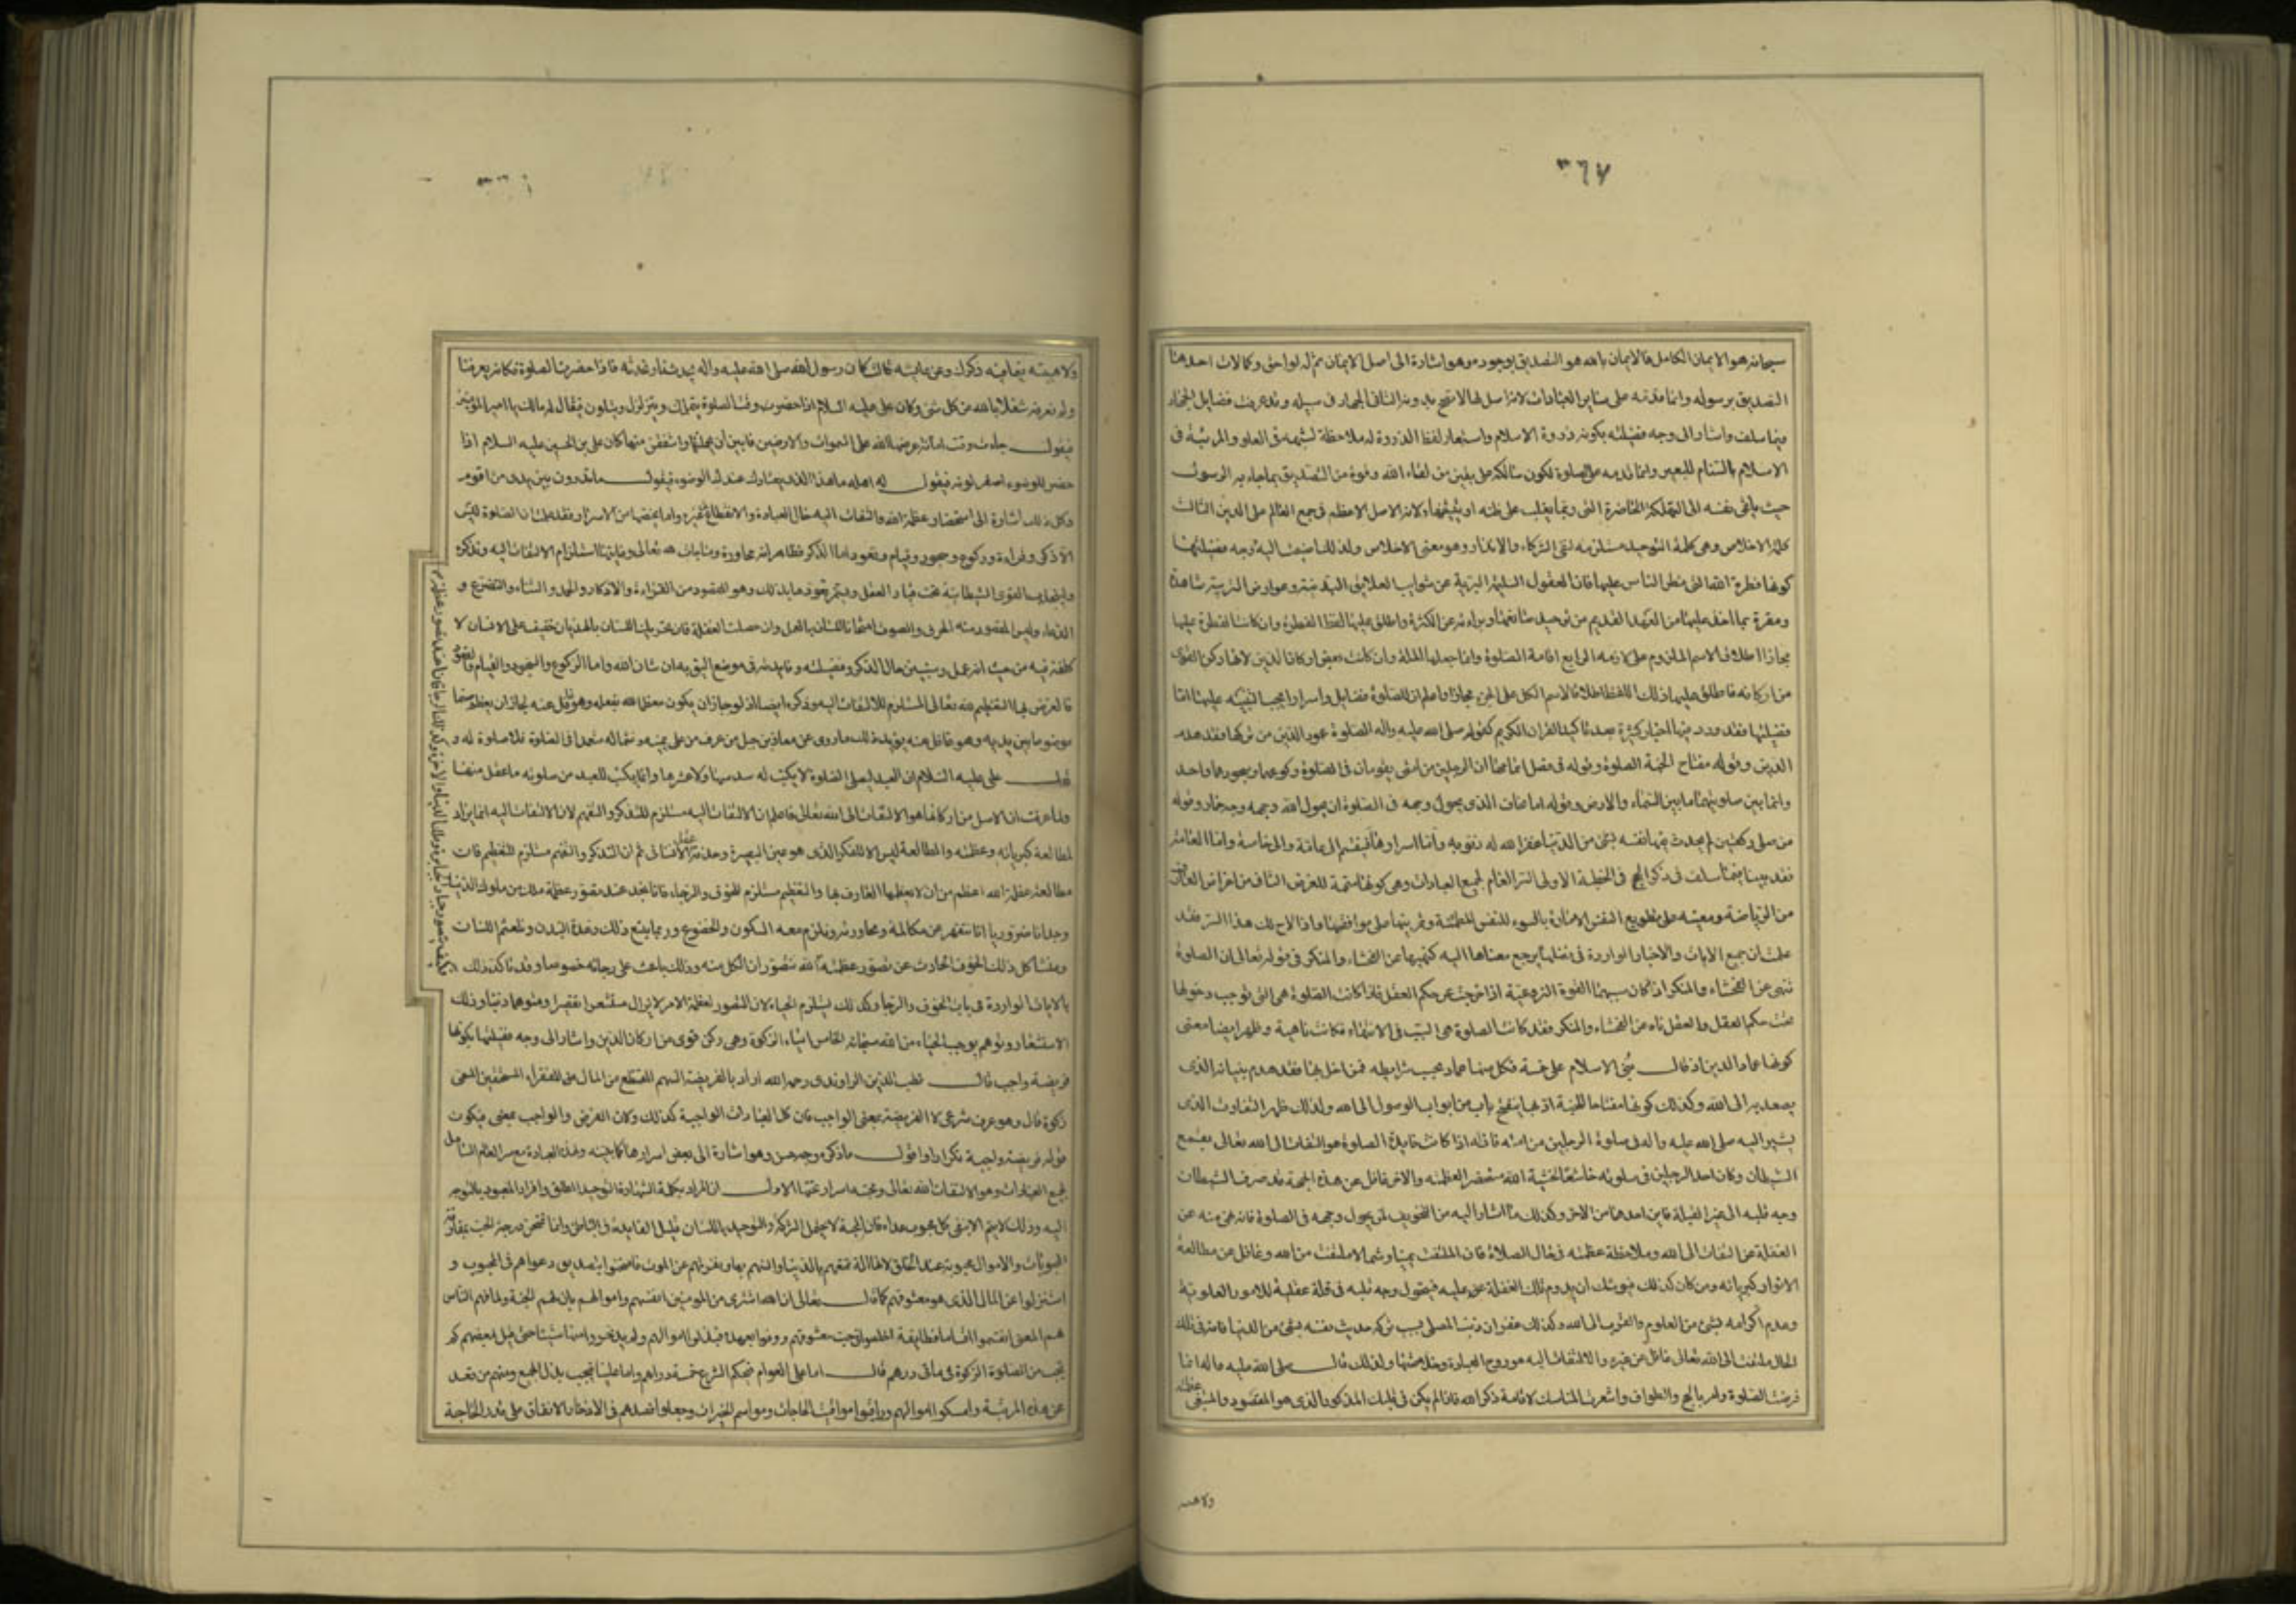 ٣٦٧
سبحانه هو الايمان الكامل فالايمان بالله هو التصديق بوجوده وهو اشارة الى اصل الايمان ثم له لواحق وكمالات احدها
التصديق برسوله وانما قدمه على سائر العبادات لانه اصل لها لا تصح بدونه الثانى الجهاد فى سبيله وقد عرفت فضايل الجهاد
فيما سلف واشار الى وجه فضيلته بكونه ذروة الاسلام واستعار لفظ الذروة له ملاحظة لشبهه فى العلو والمرتبة فى
الاسلام بالسنام للبعير وانما قدمه على الصلوة لكون سالكه على يقين من لقاء الله وقوة من التصديق بما جاء به الرسول
حيث يلقى نفسه الى التهلكة الحاضرة التى ربما يغلب على ظنه او يتيقنها ولانه الاصل الاعظم فى جمع العالم على الدين الثالث
كلمة الاخلاص وهى كلمة التوحيد مستلزمه لنفى الشركاء والانداد وهو معنى الاخلاص ولذلك اضيفت اليه ووجه فضيلتها
كونها فطرة الله التى فطر الناس عليها فان العقول السليمة البرية عن شوايب العلايق البدنية وعوارض التربية شاهدة
ومقرة بما اخذ عليها من العهد القديم من توحيد صانعها وبراءته عن الكثرة واطلق عليها لفظ الفطرة وان كانت الفطرة عليها
مجازا اطلاقا لاسم الملزوم على لازمه الرابع اقامة الصلوة وانما جعلها الملة وان كانت بعض اركان الدين لانها ركن القوى
من اركانه فاطلق عليها ذلك اللفظ اطلاقا لاسم الكل على الجزء مجازا واعلم ان للصلوة فضايل واسرارا يجب التنبيه عليها اما
فضيلتها فقد ورد فيها اخبار كثيرة بعد تاكيد القران الكريم كقوله صلى الله عليه واله الصلوة عمود الدين من تركها فقد هدم
الدين وقوله مفتاح الجنة الصلوة وقوله فى فضل اتمامها ان الرجلين من امتى يقومان فى الصلوة وركوعهما وسجودهما واحد
وانما بين صلوتيهما ما بين السماء والارض وقوله اما يخاف الذى يحول وجهه فى الصلوة ان يحول الله وجهه وجه حمار وقوله
من صلى ركعتين لم يحدث فيهما نفسه بشئ من الدنيا غفر الله له ذنوبه واما اسرارها فينقسم الى عامة والى خاصة واما العامة
فقد بينا فيما سلف فى ذكر الحج فى الخطبة الاولى السر العام لجميع العبادات وهى كونها متممة للغرض الثانى من اغراض العارف
من الرياضة ومعينة على تطويع النفس الامارة بالسوء للنفس المطمئنة وتمرينها على موافقتها واذا لاح لك هذا السر فقد
علمت ان جميع الايات والاخبار الواردة فى فضلها يرجع معناها اليه كنهيها عن الفحشاء والمنكر فى قوله تعالى ان الصلوة
تنهى عن الفحشاء والمنكر
تحت حكم العقل والعقل ناه عن الفحشاء والمنكر فقد كانت الصلوة هى السبب فى الانتهاء فكانت ناهية وظهر ايضا معنى
كونها عماد الدين اذ قال بنى الاسلام على خمسة فكل منها عماد يجب شرايطه فمن اخل بها فقد هدم بنيانه الذى
يصعد به الى الله وكذلك كونها مفتاحا للجنة اذ بها ينفتح باب من ابواب الوصول الى الله ولذلك ظهر التفاوت الذى
يشير اليه صلى الله عليه واله فى صلوة الرجلين من امته فانه اذا كانت فايدة الصلوة هو التفات الى الله تعالى بقمع
الشيطان وكان احد الرجلين فى صلوته خاشعا لخشية الله مستحضر العظمته والاخر غافل عن هذه الجهة قد صرف الشيطان
وجه قلبه الى غير القبلة فاين احدهما من الاخر وكذلك ما اشار اليه من التخويف لمن يحول وجهه فى الصلوة فانه نهى منه عن
الغفلة عن التفات الى الله وملاحظة عظمته فى حال الصلاة فان الملتفت يمينا وشمالا ملتفت من الله وغافل عن مطالعة
الانوار كبريائه ومن كان كذلك فيوشك ان يدوم تلك الغفلة عليه فيتحول وجه قلبه فى قلة عقلية للامور العلوية
وعدم اكرامه بشئ من العلوم والقرب الى الله وكذلك غفران ذنب المصلى بسبب تركه حديث نفسه بشئ من الدنيا فانه فى تلك
الحال ملتفت الى الله تعالى غافل عن غيره والالتفات اليه هو روح العبادة وخلاصتها ولذلك قال صلى الله عليه واله انما
فرضت الصلوة وامر بالحج والطواف واشعرت المناسك لاقامة ذكر الله فاذا لم يكن فى قلبك المذكور الذى هو المقصود والمبتغى عظمة
ولا هيبة
ولا هيبته بقيامه ذكرك وعن عايشه قالت كان رسول الله صلى الله عليه واله يحدثنا ونحدثه فاذا حضرت الصلوة فكانه لم يعرفنا
ولم نعرفه شغلا بالله من كل شئ وكان على عليه السلام اذا حضرت وقت الصلوة يتململ ويتزلزل ويتلون فيقال له مالك يا امير المؤمنين
فيقول جاءت وقت امانة عرضها الله على السموات والارضين فابين ان يحملنها واشفقن منها كان على بن الحسين عليه السلام اذا
حضر للوضوء اصفر لونه فيقول له اهله ما هذا الذى يعتادك عند الوضوء فيقول ما تدرون بين يدى من اقوم
وكل ذلك اشارة الى استحضار عظمة الله والتفات اليه حال العبادة والانقطاع عن غيره واما ما يخصها من الاسرار فقد علمت ان الصلوة ليس
الا ذكر وقراءة وركوع وسجود وقيام وقعود اما الذكر فظاهر انه محاورة ومناجات لله تعالى وغايتها استلزام الالتفات اليه وتذكره
الدعاء وليس المقصود منه الحرف والصوت امتحانا للسان بالعمل وان حصلت الغفلة فان تحريك اللسان بالهذيان خفيف على الانسان لا
كلفة فيه من حيث انه عمل وسنبين حال الذكر وفضيلته وفايدته فى موضع اليق به ان شاء الله واما الركوع والسجود والقيام والقعود
فالغرض بها التعظيم لله تعالى المستلزم للالتفات اليه وذكره ايضا اذ لو جاز ان يكون معظما لله بفعله وهو غافل عنه لجاز ان يعظم صنما
موضوعا بين يديه وهو غافل عنه يؤيد ذلك ما روى عن معاذ بن جبل من عرف من على يمينه وشماله متعمدا فى الصلوة فلا صلوة له و
قال على عليه السلام ان العبد ليصلى الصلوة لا يكتب له سدسها ولا عشرها وانما يكتب للعبد من صلوته ما عقل منها
ولما عرفت ان الاصل من اركانها هو الالتفات الى الله تعالى فاعلم ان الالتفات اليه مستلزم للتذكر والتفهم لان الالتفات اليه انما يراد
لمطالعة كبريائه وعظمته والمطالعة ليس الا للفكر الذى هو عين البصيرة وحدقة عقل الانسانى ثم ان التذكر والتفهم مستلزم للتعظيم فان
مطالعة عظمة الله اعظم من ان لا يعظمها العارف بها والتعظيم مستلزم للخوف والرجاء فانا نجد عند تصور عظمة ملك من ملوك الدنيا
وجدانا ضروريا انا نتقهر عن مكالمة ومحاورته ونلزم معه السكون والخضوع وربما يتبع ذلك رعدة البدن وتلعثم اللسان
ومنشا كل ذلك الخوف الحادث عن تصور عظمته
بالايات الواردة فى باب الخوف والرجا وكذلك يستلزم الحياء لان المتصور لعظمة الامر لا يزال مستشعرا تقصيرا ومتوهما ذنبا وذلك
الاستشعار وتوهم يوجب الحياء من الله سبحانه الخامس ايتاء الزكوة وهى ركن قوى من اركان الدين واشار الى وجه فضيلتها بكونها
فريضة واجبة قال قطب الدين الراوندى رحمه الله اراد بالفريضة السهم المقتطع من المال حق للفقراء المستحقين المسمى
زكوة قال وهو عرف شرعى لا الفريضة بمعنى الواجب فان كل العبادات الواجبة كذلك ولان الفرض والواجب بمعنى فيكون
قوله فريضة واجبة تكرارا واقول ما ذكره وجه حسن وهو اشارة الى بعض اسرارها
لجميع العبادات وهو الالتفات الى الله تعالى ومحبته اسرار تحتها الاول ان المراد بكلمة الشهادة التوحيد المطلق وافراد المعبود بالتوجه
اليه وذلك لا يتم الا بنفى كل محبوب عداه فان المحبة لا يحتمل الشركة والتوحيد باللسان قليل الفايدة فى الباطن وانما تمتحن درجة الحب بمفارقة
المحبوبات والاموال محبوبة عند الخلق لانها الة تمتعهم بالدنيا وانسهم بها ونفرتهم عن الموت فامتحنوا بتصديق دعواهم فى المحبوب و
استنزلوا عن المال الذى هو معشوقهم كما قال تعالى ان الله اشترى من المؤمنين انفسهم واموالهم بان لهم الجنة ولما فهم الناس
هذا المعنى انقسموا اقساما فطايفة اخلصوا فى حب معشوقهم ووفوا بعهده فبذلوا اموالهم ولم يدخروا منها شيئا حتى قيل لبعضهم كم
يجب من الصلوة الزكوة فى مأتى درهم قال اما على العوام فبحكم الشرع خمسة دراهم واما علينا فيجب بذل الجميع ومنهم من قعد
عن هذه المرتبة وامسكوا اموالهم وراقبوا مواقيت الحاجات ومواسم الخيرات وجعلوا قصدهم فى الادخار الانفاق على قدر الحاجة